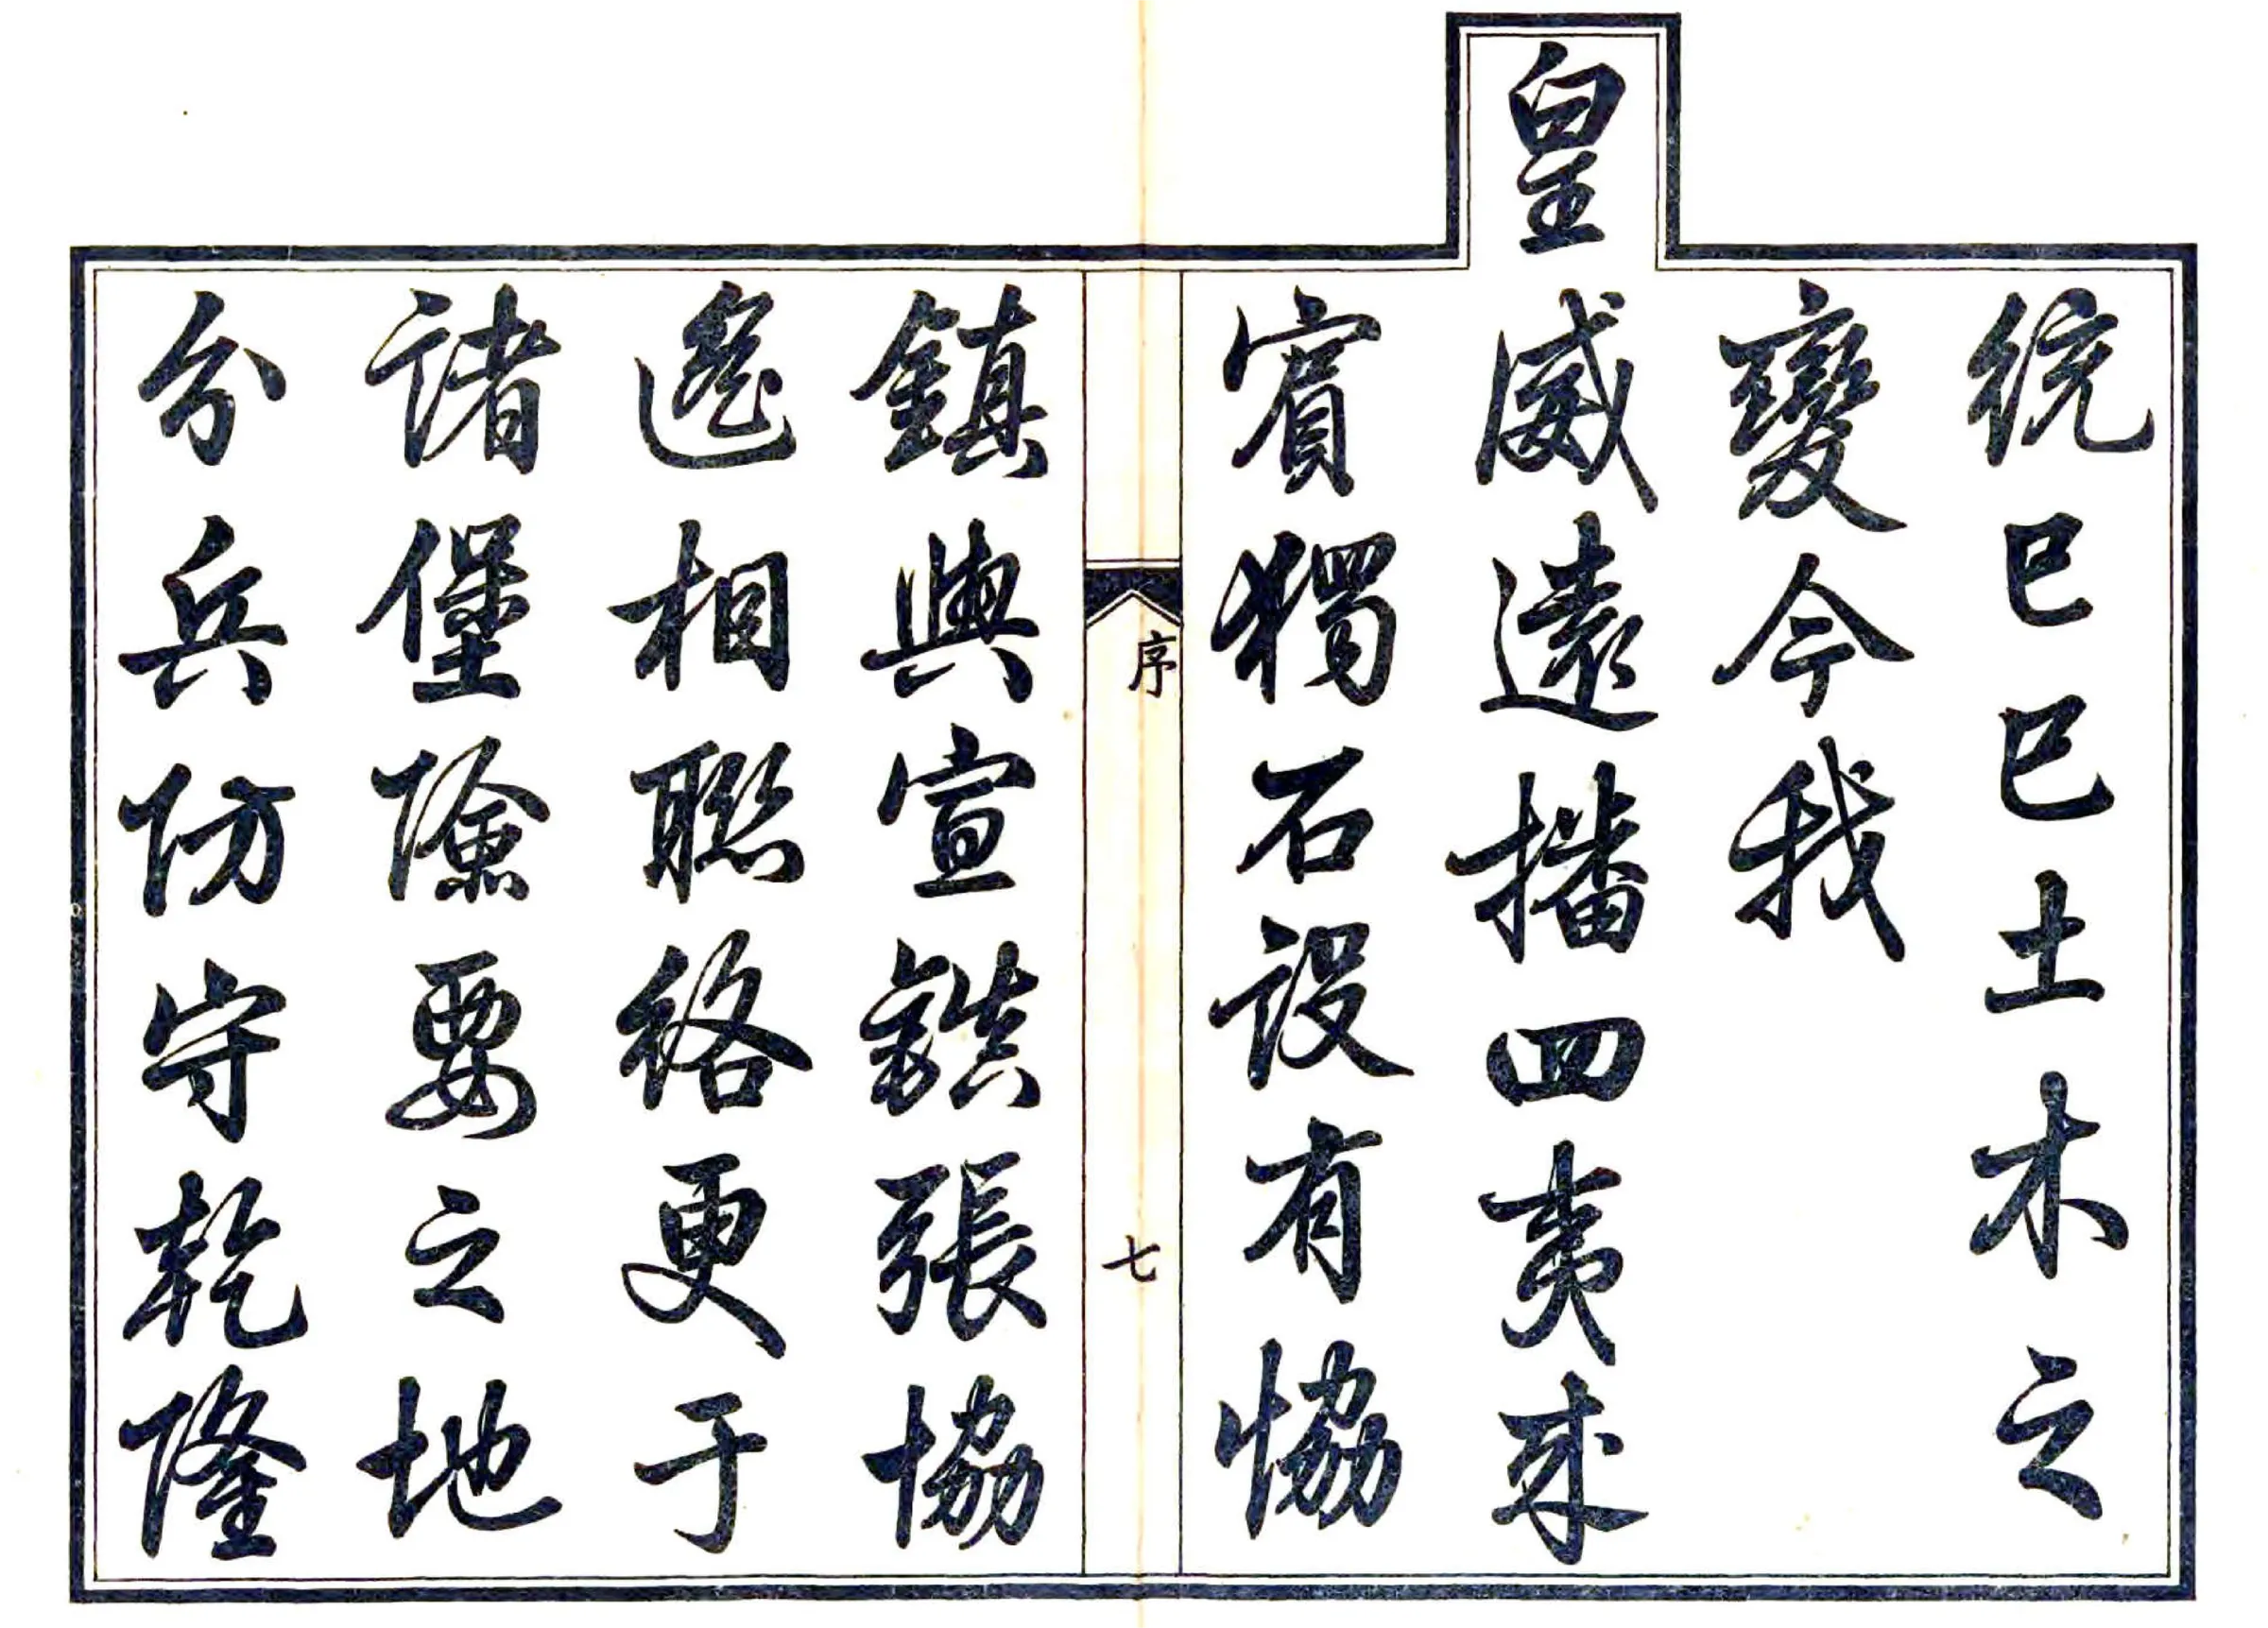 統己巳土木之
變今我
皇威遠播四夷来
賓獨石設有恊
序 七
鎮與宣鎮張協
遙相聯絡更于
諸堡險要之地
分兵防守乾隆